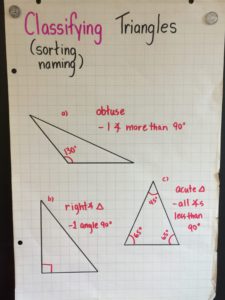 Classifying Triangles
(sorting
naming)
a) obtuse
- 1 ∡ more than 90°
130°
b) right ∡ △
- 1 angle 90°
c) acute △
- all ∡s
less than
90°
45°
65° 65°